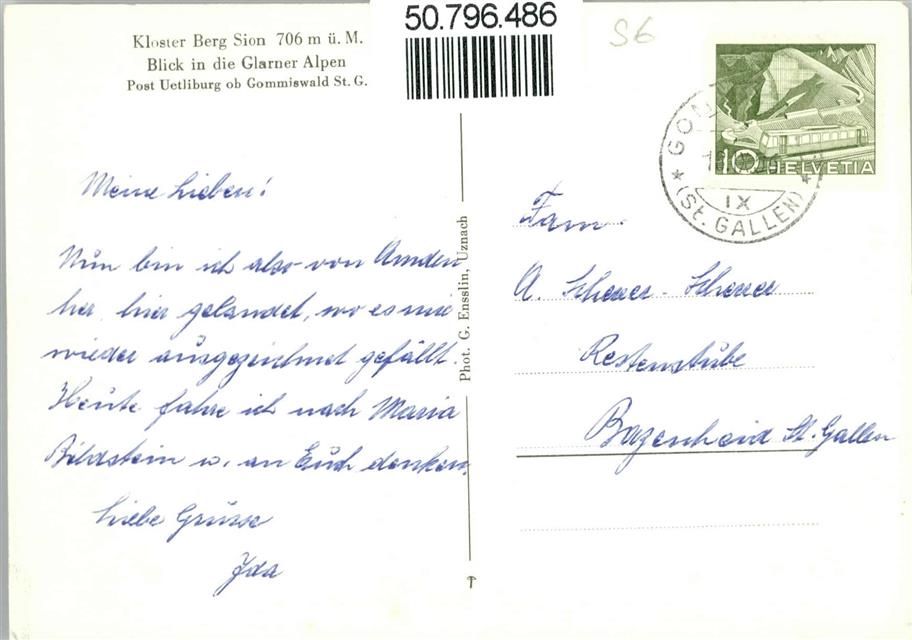 Kloster Berg Sion 706 m ü. M.
Blick in die Glarner Alpen
Post Uetliburg ob Gommiswald St. G.
50.796.486
S6
10 HELVETIA
GOM
IX
(St. GALLEN)
Meine Lieben!
Nun bin ich also von Amden
her, hier gelandet, wo es mir
wieder ausgezeichnet gefällt.
Heute fahre ich nach Maria
Bildstein u. an Euch denken.
Liebe Grüsse
Ida
Phot. G. Ensslin, Uznach
Fam.
A. Scherrer - Scherrer
Restenstube
Bazenheid St. Gallen